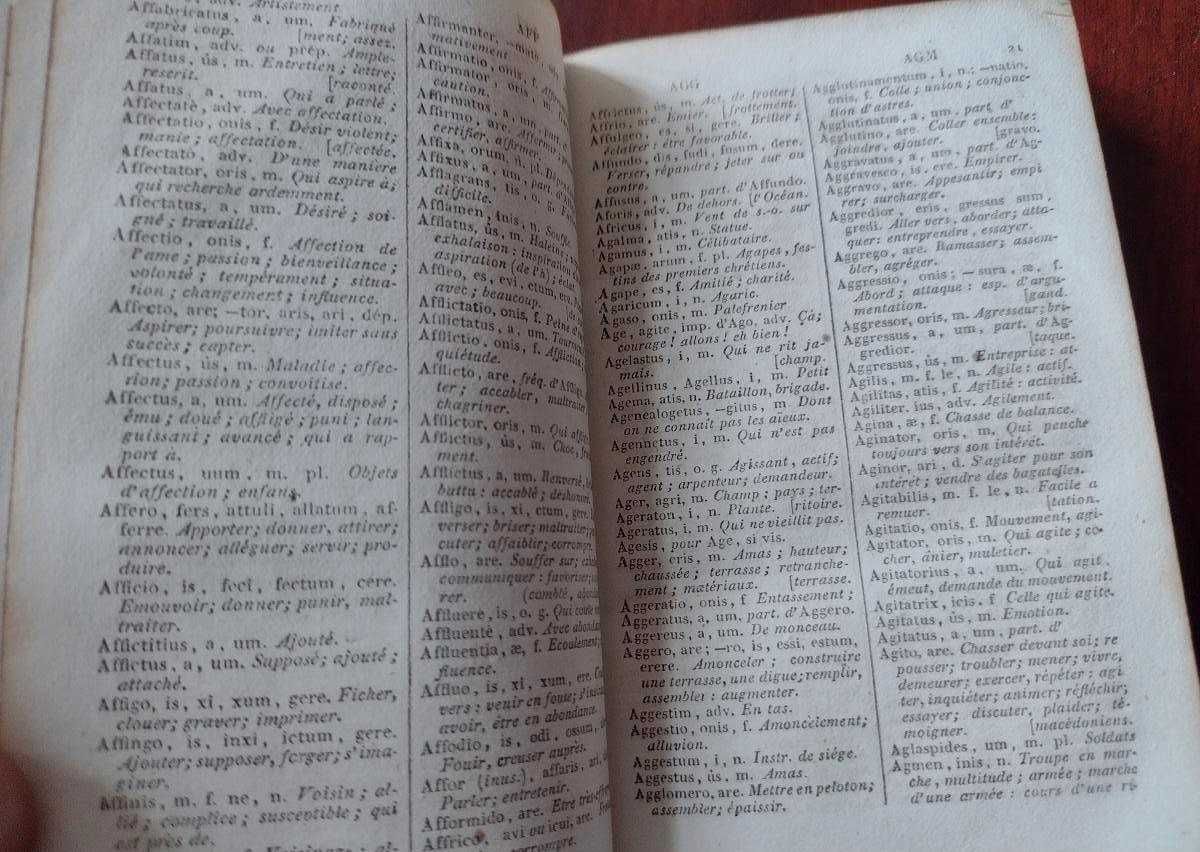 Artistement.
Affabricatus, a, um. Fabriqué
après coup. [ment; assez.
Affatim, adv. ou prép. Ample-
Affatus, ûs, m. Entretien; lettre;
rescrit. [raconté.
Affatus, a, um. Qui a parlé;
Affectatè, adv. Avec affectation.
Affectatio, onis, f. Désir violent;
manie; affectation. [affectée.
Affectato, adv. D'une manière
Affectator, oris, m. Qui aspire à;
qui recherche ardemment.
Affectatus, a, um. Désiré; soi-
gné; travaillé.
Affectio, onis, f. Affection de
l'ame; passion; bienveillance;
volonté; tempérament; situa-
tion; changement; influence.
Affecto, are; —tor, aris, ari, dép.
Aspirer; poursuivre; imiter sans
succès; capter.
Affectus, ûs, m. Maladie; affec-
tion; passion; convoitise.
Affectus, a, um. Affecté, disposé;
ému; doué; affligé; puni; lan-
guissant; avancé; qui a rap-
port à.
Affectus, uum, m. pl. Objets
d'affection; enfans.
Affero, fers, attuli, allatum, af-
ferre. Apporter; donner, attirer;
annoncer; alléguer; servir; pro-
duire.
Afficio, is, feci, fectum, cere.
Emouvoir; donner; punir, mal-
traiter.
Affictitius, a, um. Ajouté.
Affictus, a, um. Supposé; ajouté;
attaché.
Affigo, is, xi, xum, gere. Ficher,
clouer; graver; imprimer.
Affingo, is, inxi, ictum, gere.
Ajouter; supposer, forger; s'ima-
giner.
Affinis, m. f. ne, n. Voisin; al-
lié; complice; susceptible; qui
est près de.
AFF
Affirmanter,
mativement
Affirmatio, onis, f.
Affirmator, oris, m.
caution.
Affirmatus, a, um, part.
Affirmo, are. Affermir;
certifier, affirmer.
Affixa, orum, n. pl.
Affixus, a, um, part. d'
Afflagrans, tis, o. g.
difficile.
Afflamen, inis, n. Souffle.
Afflatus, ûs, m. Haleine;
exhalaison; inspiration
aspiration (de l'h);
Affleo, es, evi, etum, ere.
avec; beaucoup.
Afflictatio, onis, f. Peine
Afflictatus, a, um.
Afflictio, onis, f. Affliction;
quiétude.
Afflicto, are, fréq. d'Affligo.
ter; accabler, maltraiter
chagriner.
Afflictor, oris, m. Qui
Afflictus, ûs, m. Choc,
ment.
Afflictus, a, um. Renversé,
battu: accablé;
Affligo, is, xi, ctum, gere.
verser; briser; maltraiter;
cuter; affaiblir; corrompre.
Afflo, are. Souffler sur;
communiquer: favoriser;
rer. (comblé,
Affluere, is, o. g. Qui coule
Affluentè, adv. Avec
Affluentia, æ, f. Ecoulement;
fluence.
Affluo, is, xi, xum, ere.
vers; venir en foule;
avoir, être en abondance.
Affodio, is, odi, ossum,
Fouir, creuser auprès.
Affor (inus.), affaris,
Parler; entretenir.
Afformido, are. Etre
Affrico, avi ou icui, are.
corrompre.
AGG
Affrictus, ûs, m. Act. de frotter;
Affrio, are. Emier. [frottement.
Affulgeo, es, si, gere. Briller;
éclairer: être favorable.
Affundo, dis, fudi, fusum, dere.
Verser, répandre; jeter sur ou
contre.
Affusus, a, um, part. d'Affundo.
Aforis, adv. De dehors. [l'Océan.
Africus, i, m. Vent de s.-o. sur
Agalma, atis, n. Statue.
Agamus, i, m. Célibataire.
Agapæ, arum, f. pl. Agapes, fes-
tins des premiers chrétiens.
Agape, es, f. Amitié; charité.
Agaricum, i, n. Agaric.
Agaso, onis, m. Palefrenier
Age, agite, imp. d'Ago, adv. Çà;
courage! allons! eh bien!
Agelastus, i, m. Qui ne rit ja-
mais. [champ.
Agellinus, Agellus, i, m. Petit
Agema, atis, n. Bataillon, brigade.
Agenealogetus, —gitus, m. Dont
on ne connaît pas les aïeux.
Agennetus, i, m. Qui n'est pas
engendré.
Agens, tis, o. g. Agissant, actif;
agent; arpenteur; demandeur.
Ager, agri, m. Champ; pays; ter-
Ageraton, i, n. Plante. [ritoire.
Ageratus, i, m. Qui ne vieillit pas.
Agesis, pour Age, si vis.
Agger, eris, m. Amas; hauteur;
chaussée; terrasse; retranche-
ment; matériaux. [terrasse.
Aggeratio, onis, f Entassement;
Aggeratus, a, um, part. d'Aggero.
Aggereus, a, um. De monceau.
Aggero, are; —ro, is, essi, estum,
erere. Amonceler; construire
une terrasse, une digue; remplir,
assembler: augmenter.
Aggestim, adv. En tas.
Aggestio, onis, f. Amoncèlement;
alluvion.
Aggestum, i, n. Instr. de siége.
Aggestus, ûs, m. Amas.
Agglomero, are. Mettre en peloton;
assembler; épaissir.
AGM
21
Agglutinamentum, i, n.; —natio,
onis, f. Colle; union; conjonc-
tion d'astres.
Agglutinatus, a, um, part. d'
Agglutino, are. Coller ensemble:
joindre, ajouter. [gravo.
Aggravatus, a, um, part. d'Ag-
Aggravesco, is, ere. Empirer.
Aggravo, are. Appesantir; empi
rer; surcharger.
Aggredior, eris, gressus sum,
gredi. Aller vers, aborder; atta-
quer: entreprendre, essayer.
Aggrego, are. Ramasser; assem-
bler, agréger.
Aggressio, onis; —sura, æ, f.
Abord; attaque: esp. d'argu-
mentation. [gand.
Aggressor, oris, m. Agresseur; bri-
Aggressus, a, um, part. d'Ag-
gredior. [taque.
Aggressus, ûs, m. Entreprise: at-
Agilis, m. f. le, n. Agile: actif.
Agilitas, atis, f. Agilité: activité.
Agiliter, ius, adv. Agilement.
Agina, æ, f. Chasse de balance.
Aginator, oris, m. Qui penche
toujours vers son intérêt.
Aginor, ari, d. S'agiter pour son
intérêt; vendre des bagatelles.
Agitabilis, m. f. le, n. Facile a
remuer. [tation.
Agitatio, onis, f. Mouvement, agi-
Agitator, oris, m. Qui agite; co-
cher, ânier, muletier.
Agitatorius, a, um. Qui agit,
émeut, demande du mouvement.
Agitatrix, icis. f Celle qui agite.
Agitatus, ûs, m. Emotion.
Agitatus, a, um, part. d'
Agito, are. Chasser devant soi; re
pousser; troubler; mener; vivre,
demeurer; exercer, répéter: agi
ter, inquiéter; animer; réfléchir;
essayer; discuter, plaider; té-
moigner. [macédoniens.
Aglaspides, um, m. pl. Soldats
Agmen, inis, n. Troupe en mar-
che, multitude; armée; marche
d'une armée: cours d'une ri-